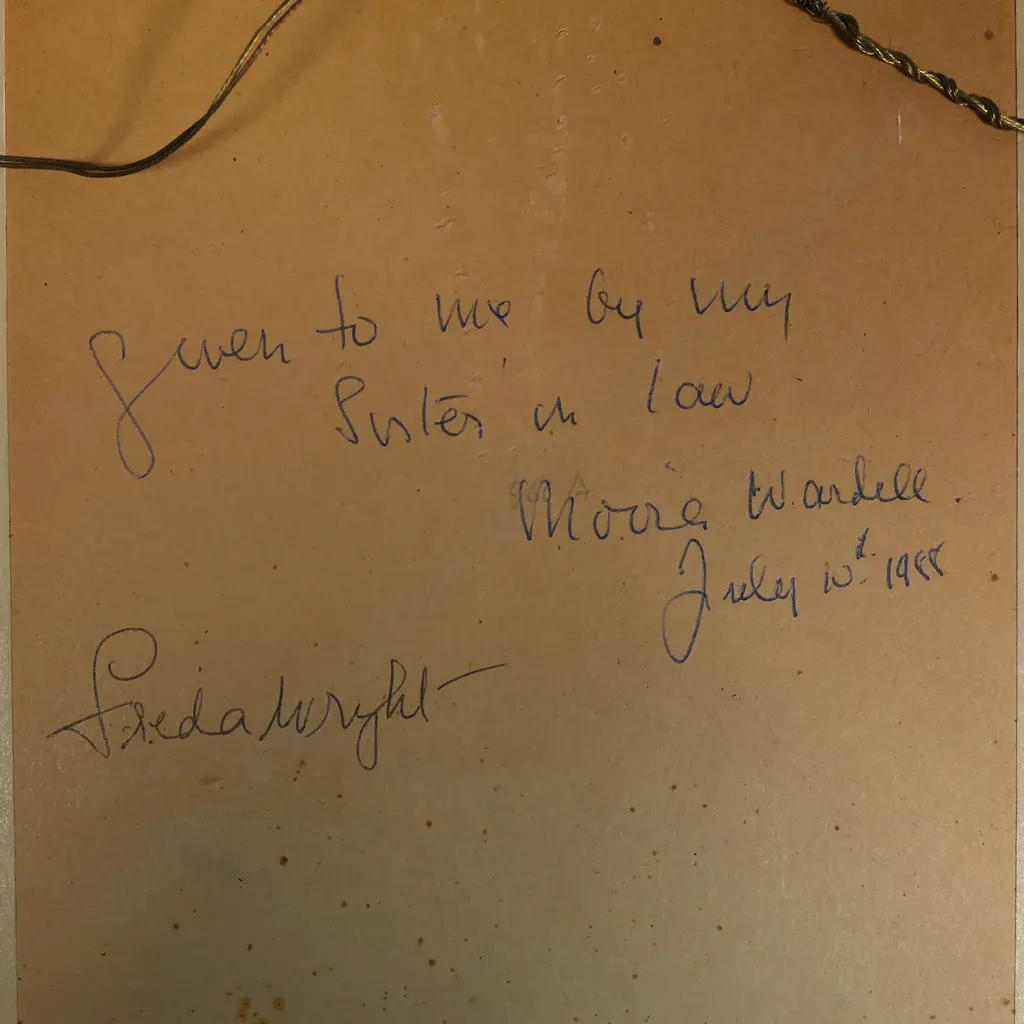 Given to me by my
Sister in law
Moira Wardell.
July 10th 1988
Freda Wright